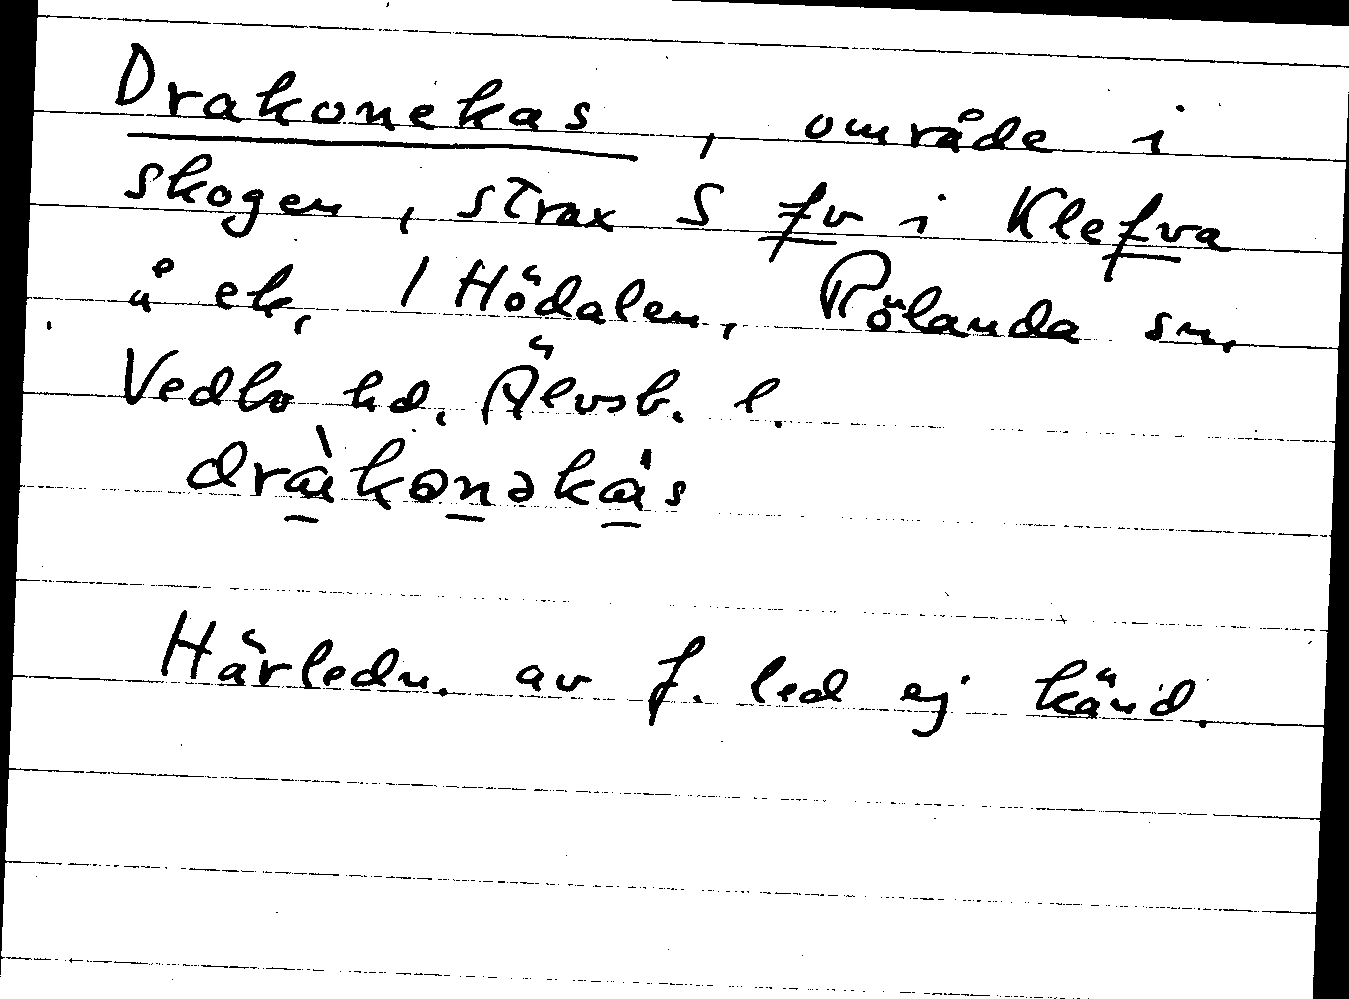 Drakonekas, område i
skogen, strax S fv i Klefva
å ek, 1 Hödalen, Rölanda sn,
Vedbo hd. Älvsb. l.
dràkonəkás
Härledn. av f. led ej känd.